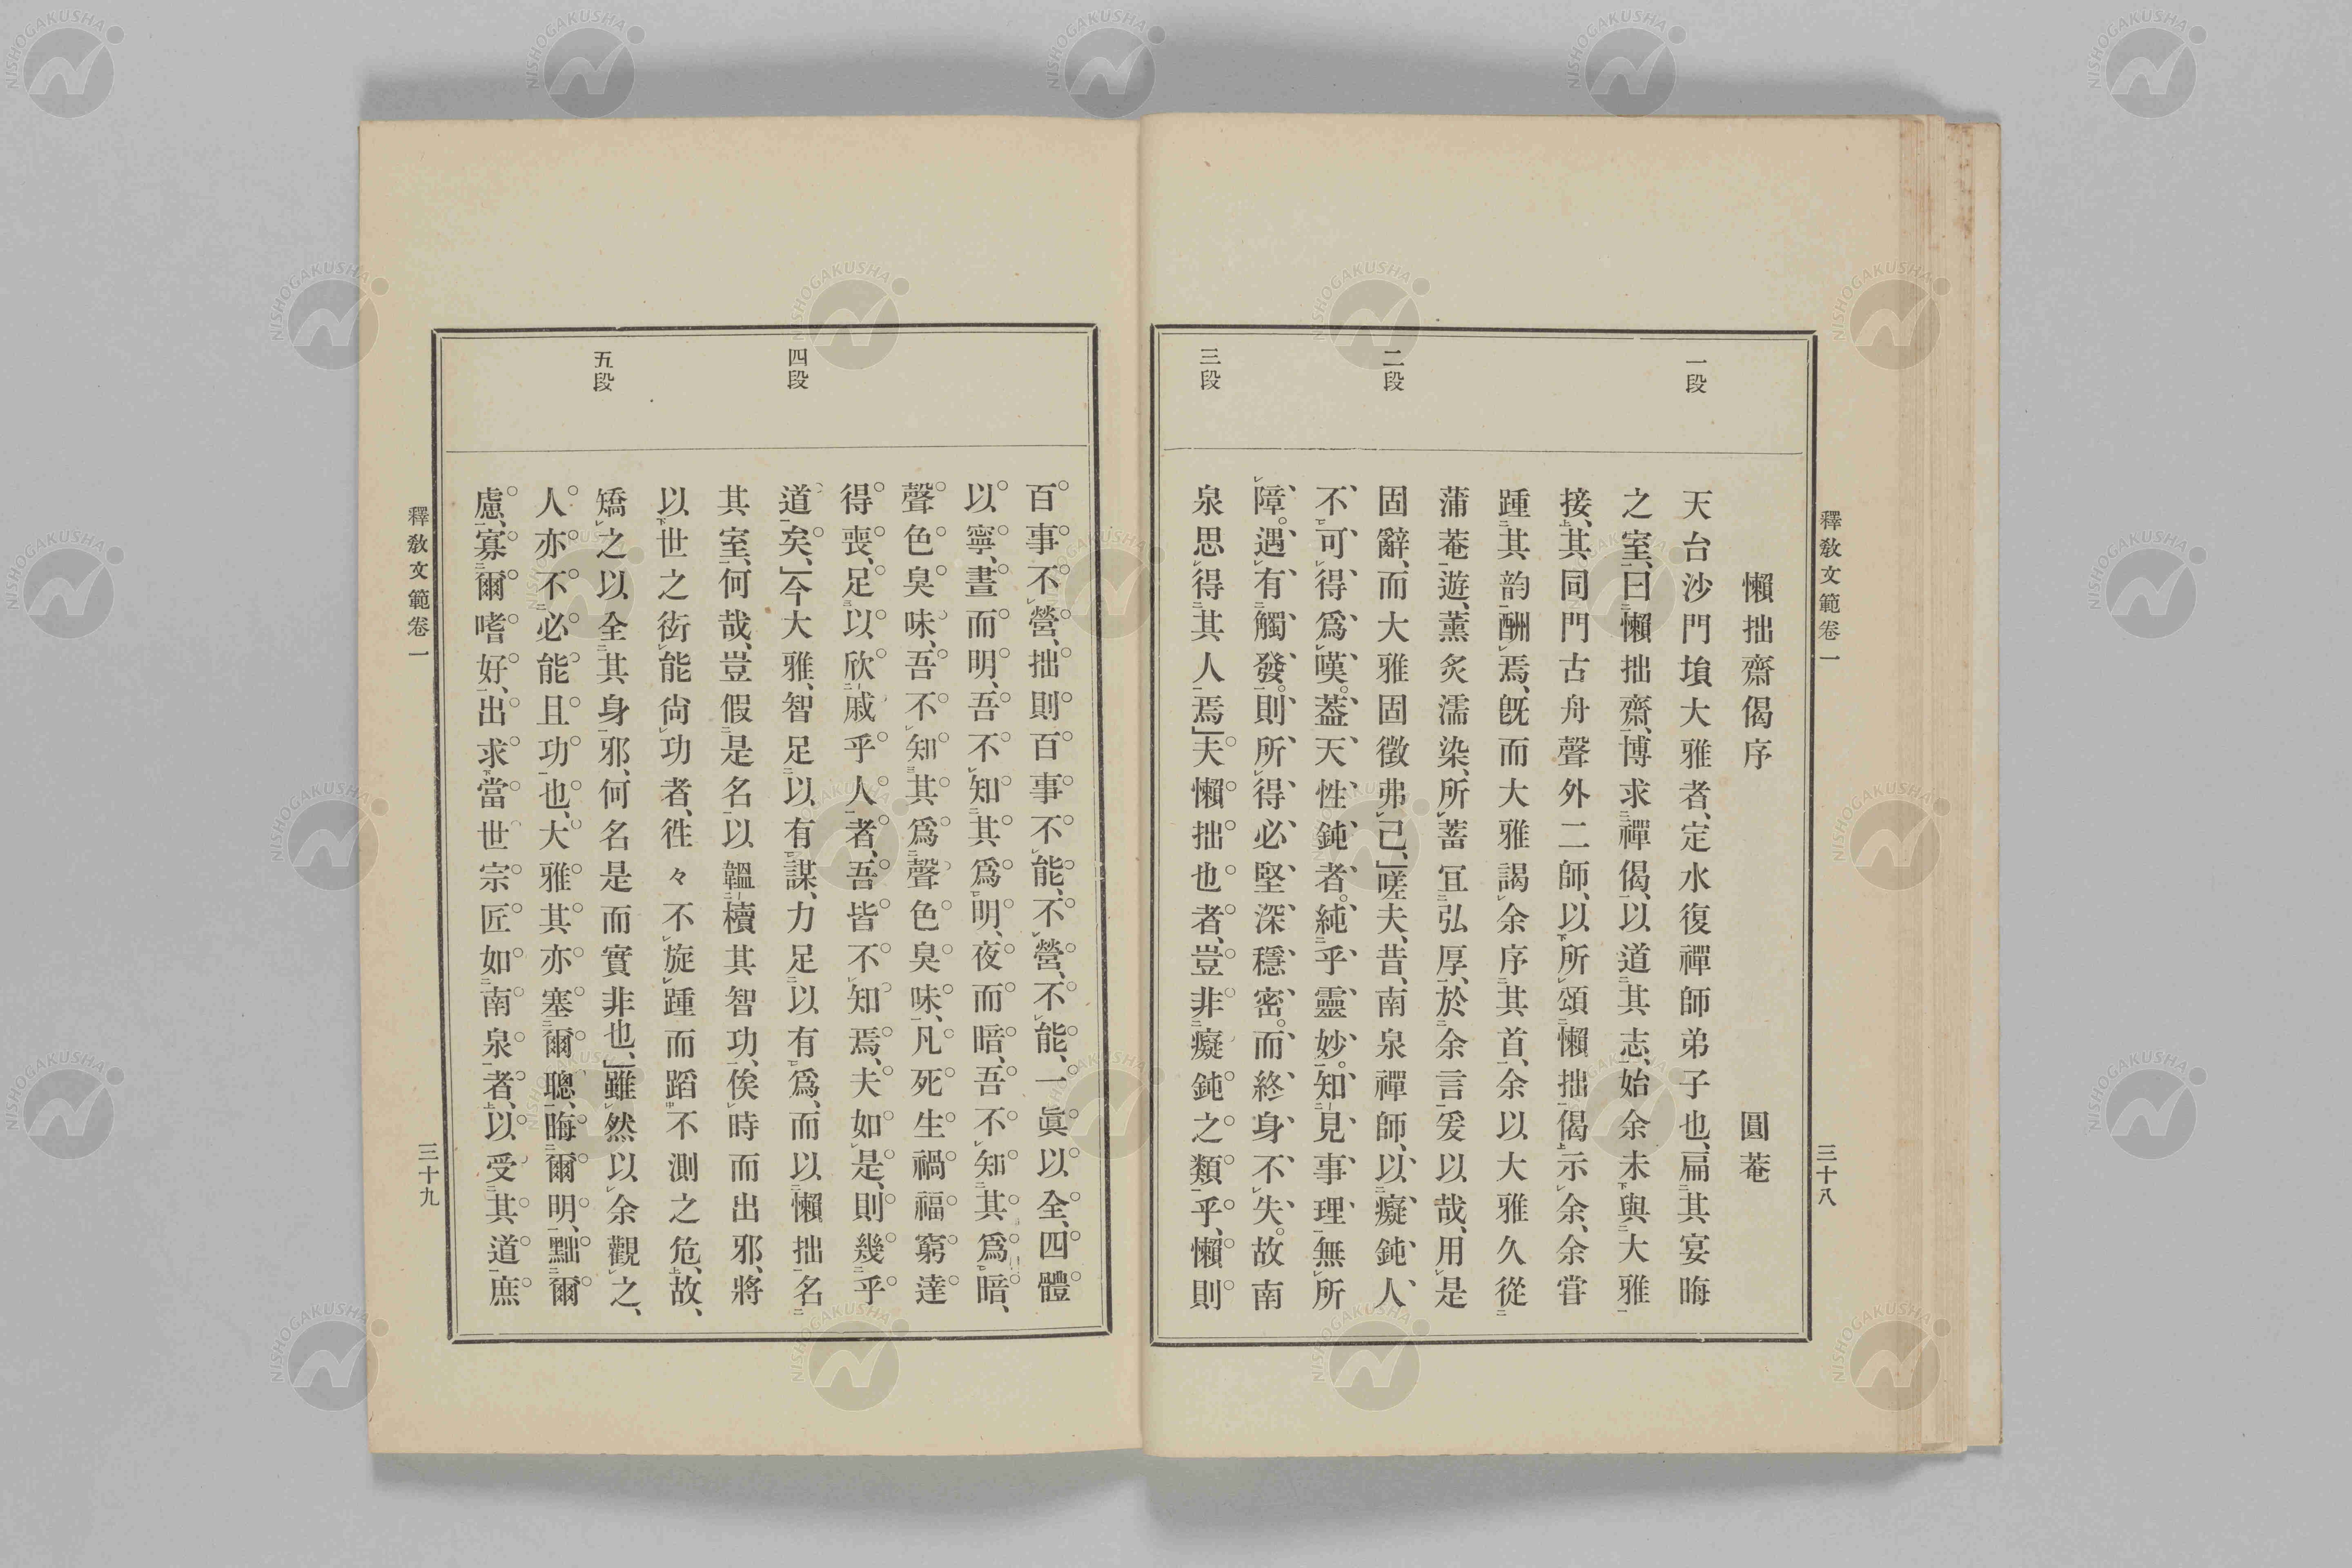 釋敎文範卷一
三十八
一段
二段
三段
懶拙齋偈序 圓菴
天台沙門塤大雅者、定水復禪師弟子也、扁其宴晦
之室、曰懶拙齋、博求禪偈、以道其志、始余未與大雅
接、其同門古舟聲外二師、以所頌懶拙偈示余、余甞
踵其韵酬焉、旣而大雅謁余序其首、余以大雅久從
蒲菴遊、薰炙濡染、所蓄冝弘厚、於余言爰以哉、用是
固辭、而大雅固徵弗已、」嗟夫、昔南泉禪師、以癡鈍人、
不可得爲嘆。葢天性鈍者。純乎靈妙。知見事理無所
障。遇有觸發。則所得必堅深穩密。而終身不失。故南
泉思得其人焉」夫懶拙也者、豈非癡鈍之類乎、懶則
四段
五段
百事不營、拙則百事不能、不營、不能、一眞以全、四體
以寧、晝而明、吾不知其爲明、夜而暗、吾不知其爲暗、
聲色臭味、吾不知其爲聲色臭味、凡死生禍福窮達
得喪、足以欣戚乎人者、吾皆不知焉、夫如是、則幾乎
道矣、」今大雅、智足以有謀、力足以有爲、而以懶拙名
其室、何哉、豈假是名以韞櫝其智功、俟時而出邪、將
以世之衒能尙功者、徃々不旋踵而蹈不測之危、故、
矯之以全其身邪、何名是而實非也、」雖然以余觀之、
人亦不必能且功也、大雅其亦塞爾聰、晦爾明、黜爾
慮、寡爾嗜好、出求當世宗匠如南泉者、以受其道庶
釋敎文範卷一
三十九